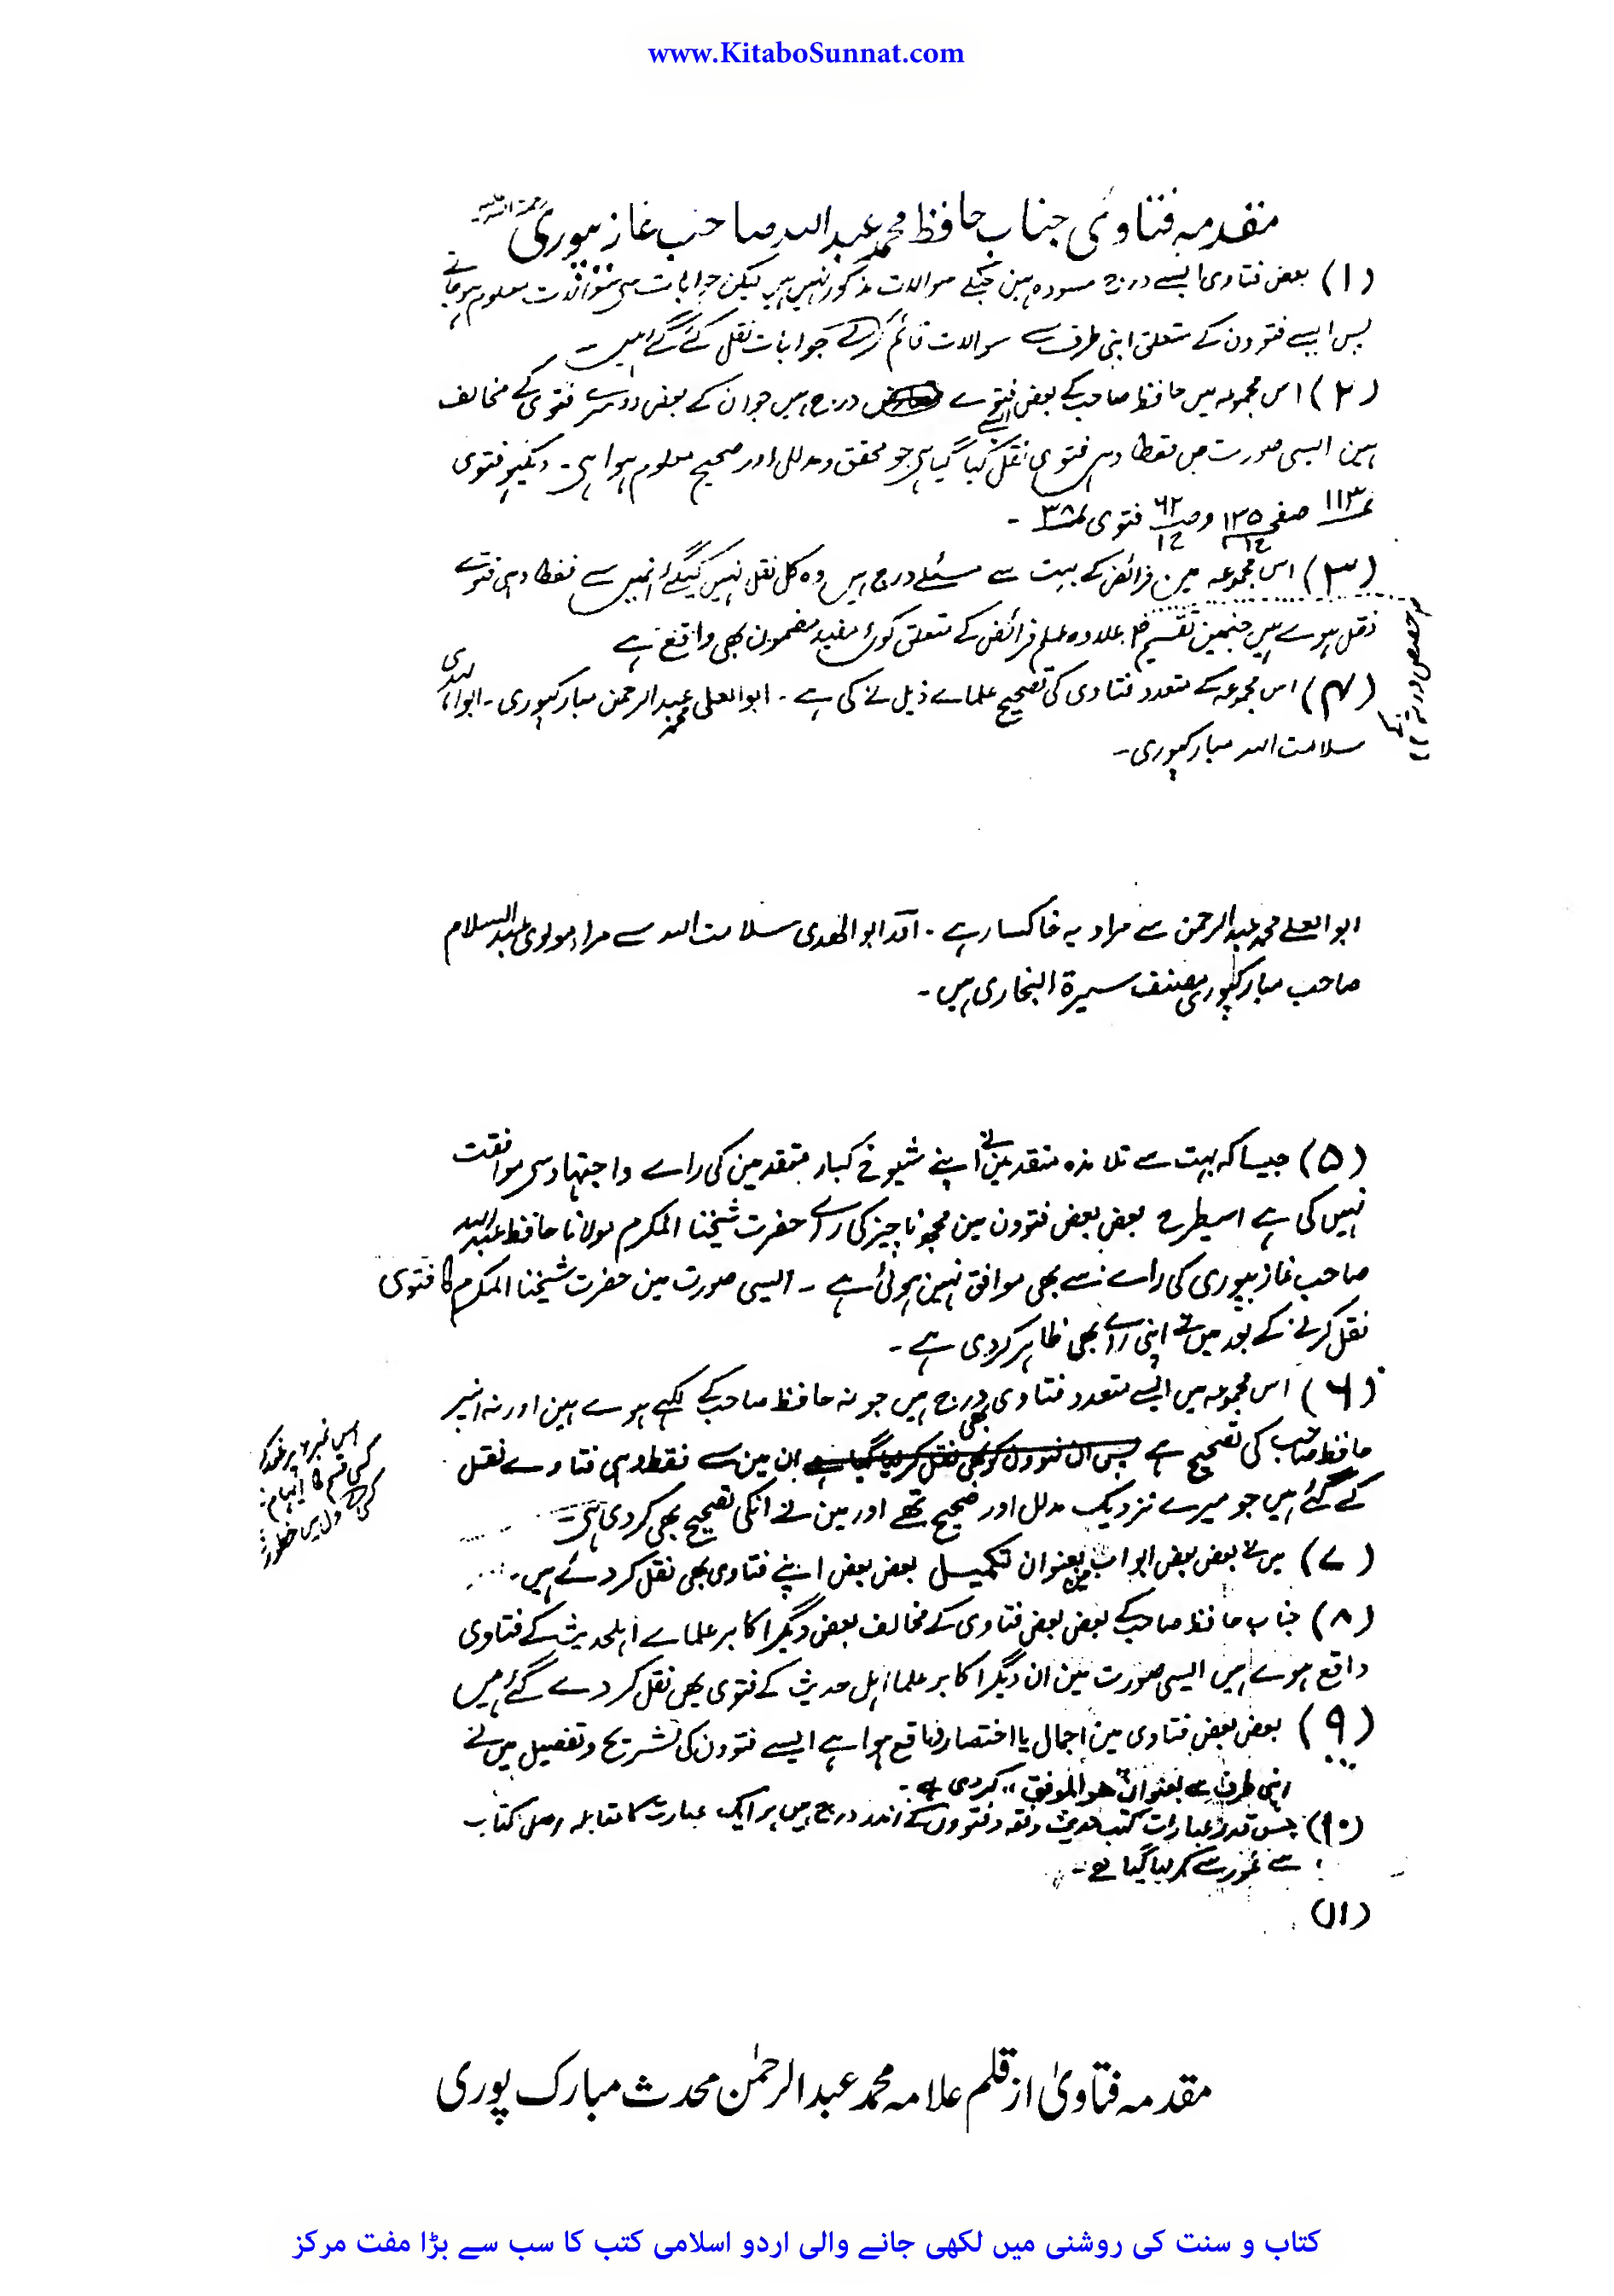 www.KitaboSunnat.com
مقدمہ فتاوی جناب حافظ محمد عبد اللہ صاحب غازیپوری رحمۃ اللہ علیہ
(۱) بعض فتاوی ایسے درج مسودہ ہین جنکے سوالات مذکور نہیں ہیں لیکن جوابات سی سوالات معلوم ہوجاتے ہیں
پس ایسے فتوون کے متعلق اپنی طرف سے سوالات قائم کرکے جوابات نقل کئے گئے ہیں
(۲) اس مجموعہ میں حافظ صاحب کے بعض فتوے ایسے درج ہیں جو ان کے بعض دوسرے فتوی کے مخالف
ہین ایسی صورت میں فقط وہی فتوی نقل کیا گیا ہی جو محقق ومدلل اور صحیح معلوم ہوا ہی۔ دیکھو فتوی
نمبر ۱۱۳ صفحہ ۱۲۵ و صـ ۶۲ فتوی نمبر ۳۸ ۔
(۳) اس مجموعہ مین فرائض کے بہت سے مسئلے درج ہیں وہ کل نقل نہیں کیگئے انمیں سے فقط وہی فتوے
نقل ہوے ہیں جنمین تقسیم علاوہ علم فرائض کے متعلق کوئی مفید مضمون بھی واقع ہے
حصص ورثہ
(۴) اس مجموعہ کے متعدد فتاوی کی تصحیح علماے ذیل نے کی ہے ۔ ابو العلی محمد عبد الرحمن مبارکپوری ۔ ابو الہدی
سلامت اللہ مبارکپوری۔
ابو العلے محمد عبد الرحمن سے مراد یہ خاکسار ہے ۔ اور ابو الھدی سلامت اللہ سے مراد مولوی عبد السلام
صاحب مبارکپوری مصنف سیرۃ البخاری ہیں ۔
(۵) جیسا کہ بہت سے تلامذہ متقدمین نے اپنے شیوخ کبار متقدمین کی راے واجتہاد سی موافقت
نہیں کی ہے اسیطرح بعض بعض فتوون مین مجھ ناچیز کی راے حضرت شیخنا المکرم مولانا حافظ عبد اللہ
صاحب غازیپوری کی راے سے بھی موافق نہین ہوئی ہے ۔ ایسی صورت مین حضرت شیخنا المکرم کا فتوی
نقل کرنے کے بعد میں نے اپنی راے بھی ظاہر کردی ہے ۔
(۶) اس مجموعہ میں ایسے متعدد فتاوی بھی درج ہیں جو نہ حافظ صاحب کے لکھے ہوے ہین اور نہ انپر
حافظ صاحب کی تصحیح ہے پس ان فتوون کو بھی نقل کر لیا گیا ہے ان مین سے فقط وہی فتاوے نقل
کئے گئے ہیں جو میرے نزدیک مدلل اور صحیح تھے اور مین نے انکی تصحیح بھی کردی ہی
اس نمبر پر غور کر
(۷) میں نے بعض بعض ابواب مین بعنوان تکمیل بعض بعض اپنے فتاوی بھی نقل کردئے ہیں۔
(۸) جناب حافظ صاحب کے بعض بعض فتاوی کے مخالف بعض دیگر اکابر علماے اہلحدیث کے فتاوی
واقع ہوے ہیں ایسی صورت مین ان دیگر اکابر علما اہل حدیث کے فتوی بھی نقل کردے گئے ہیں
(۹) بعض بعض فتاوی مین اجمال یا اختصار واقع ہوا ہے ایسے فتوون کی تشریح وتفصیل میں نے
اپنی طرف سے بعنوان "ھو الموفق" کردی ہے ۔
(۱۰) جس قدر عبارات کتب حدیث وفقہ وفتووں کے اندر درج ہیں ہر ایک عبارت کا مقابلہ اصل کتاب
سے غور سے کر لیا گیا ہے ۔
(۱۱)
مقدمہ فتاویٰ از قلم علامہ محمد عبدالرحمٰن محدث مبارک پوری
کتاب و سنت کی روشنی میں لکھی جانے والی اردو اسلامی کتب کا سب سے بڑا مفت مرکز